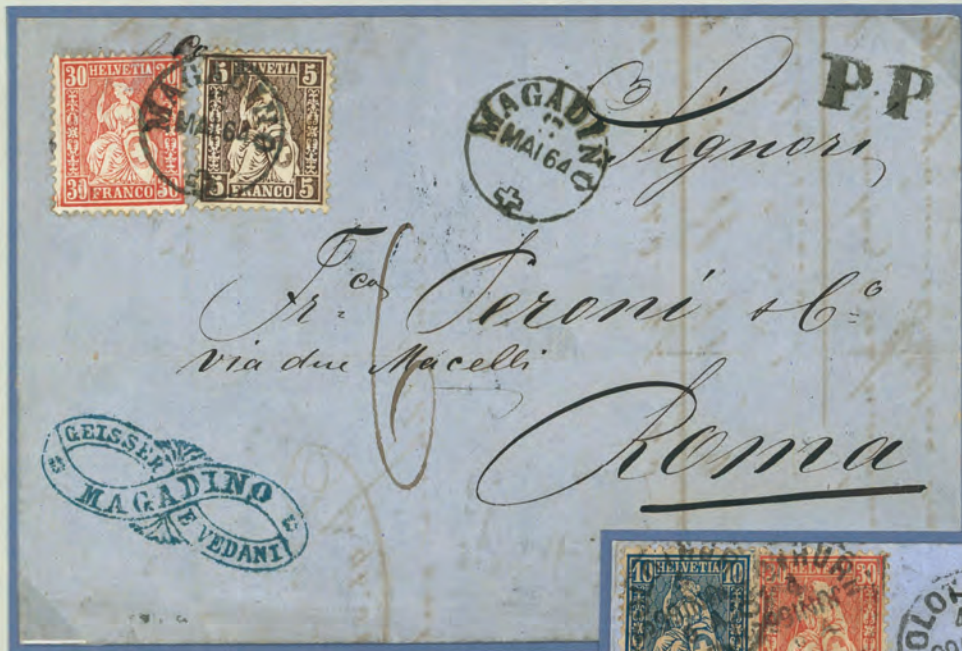 30 HELVETIA 30
30 FRANCO 30
5 HELVETIA 5
5 FRANCO 5
MAGADINO
MAI 64
MAGADINO
17
MAI 64
P.P
Signori
Fr.co Feroni & Co
via due Macelli
6
Roma
GEISSER
MAGADINO
E VEDANI
10 HELVETIA 10
30